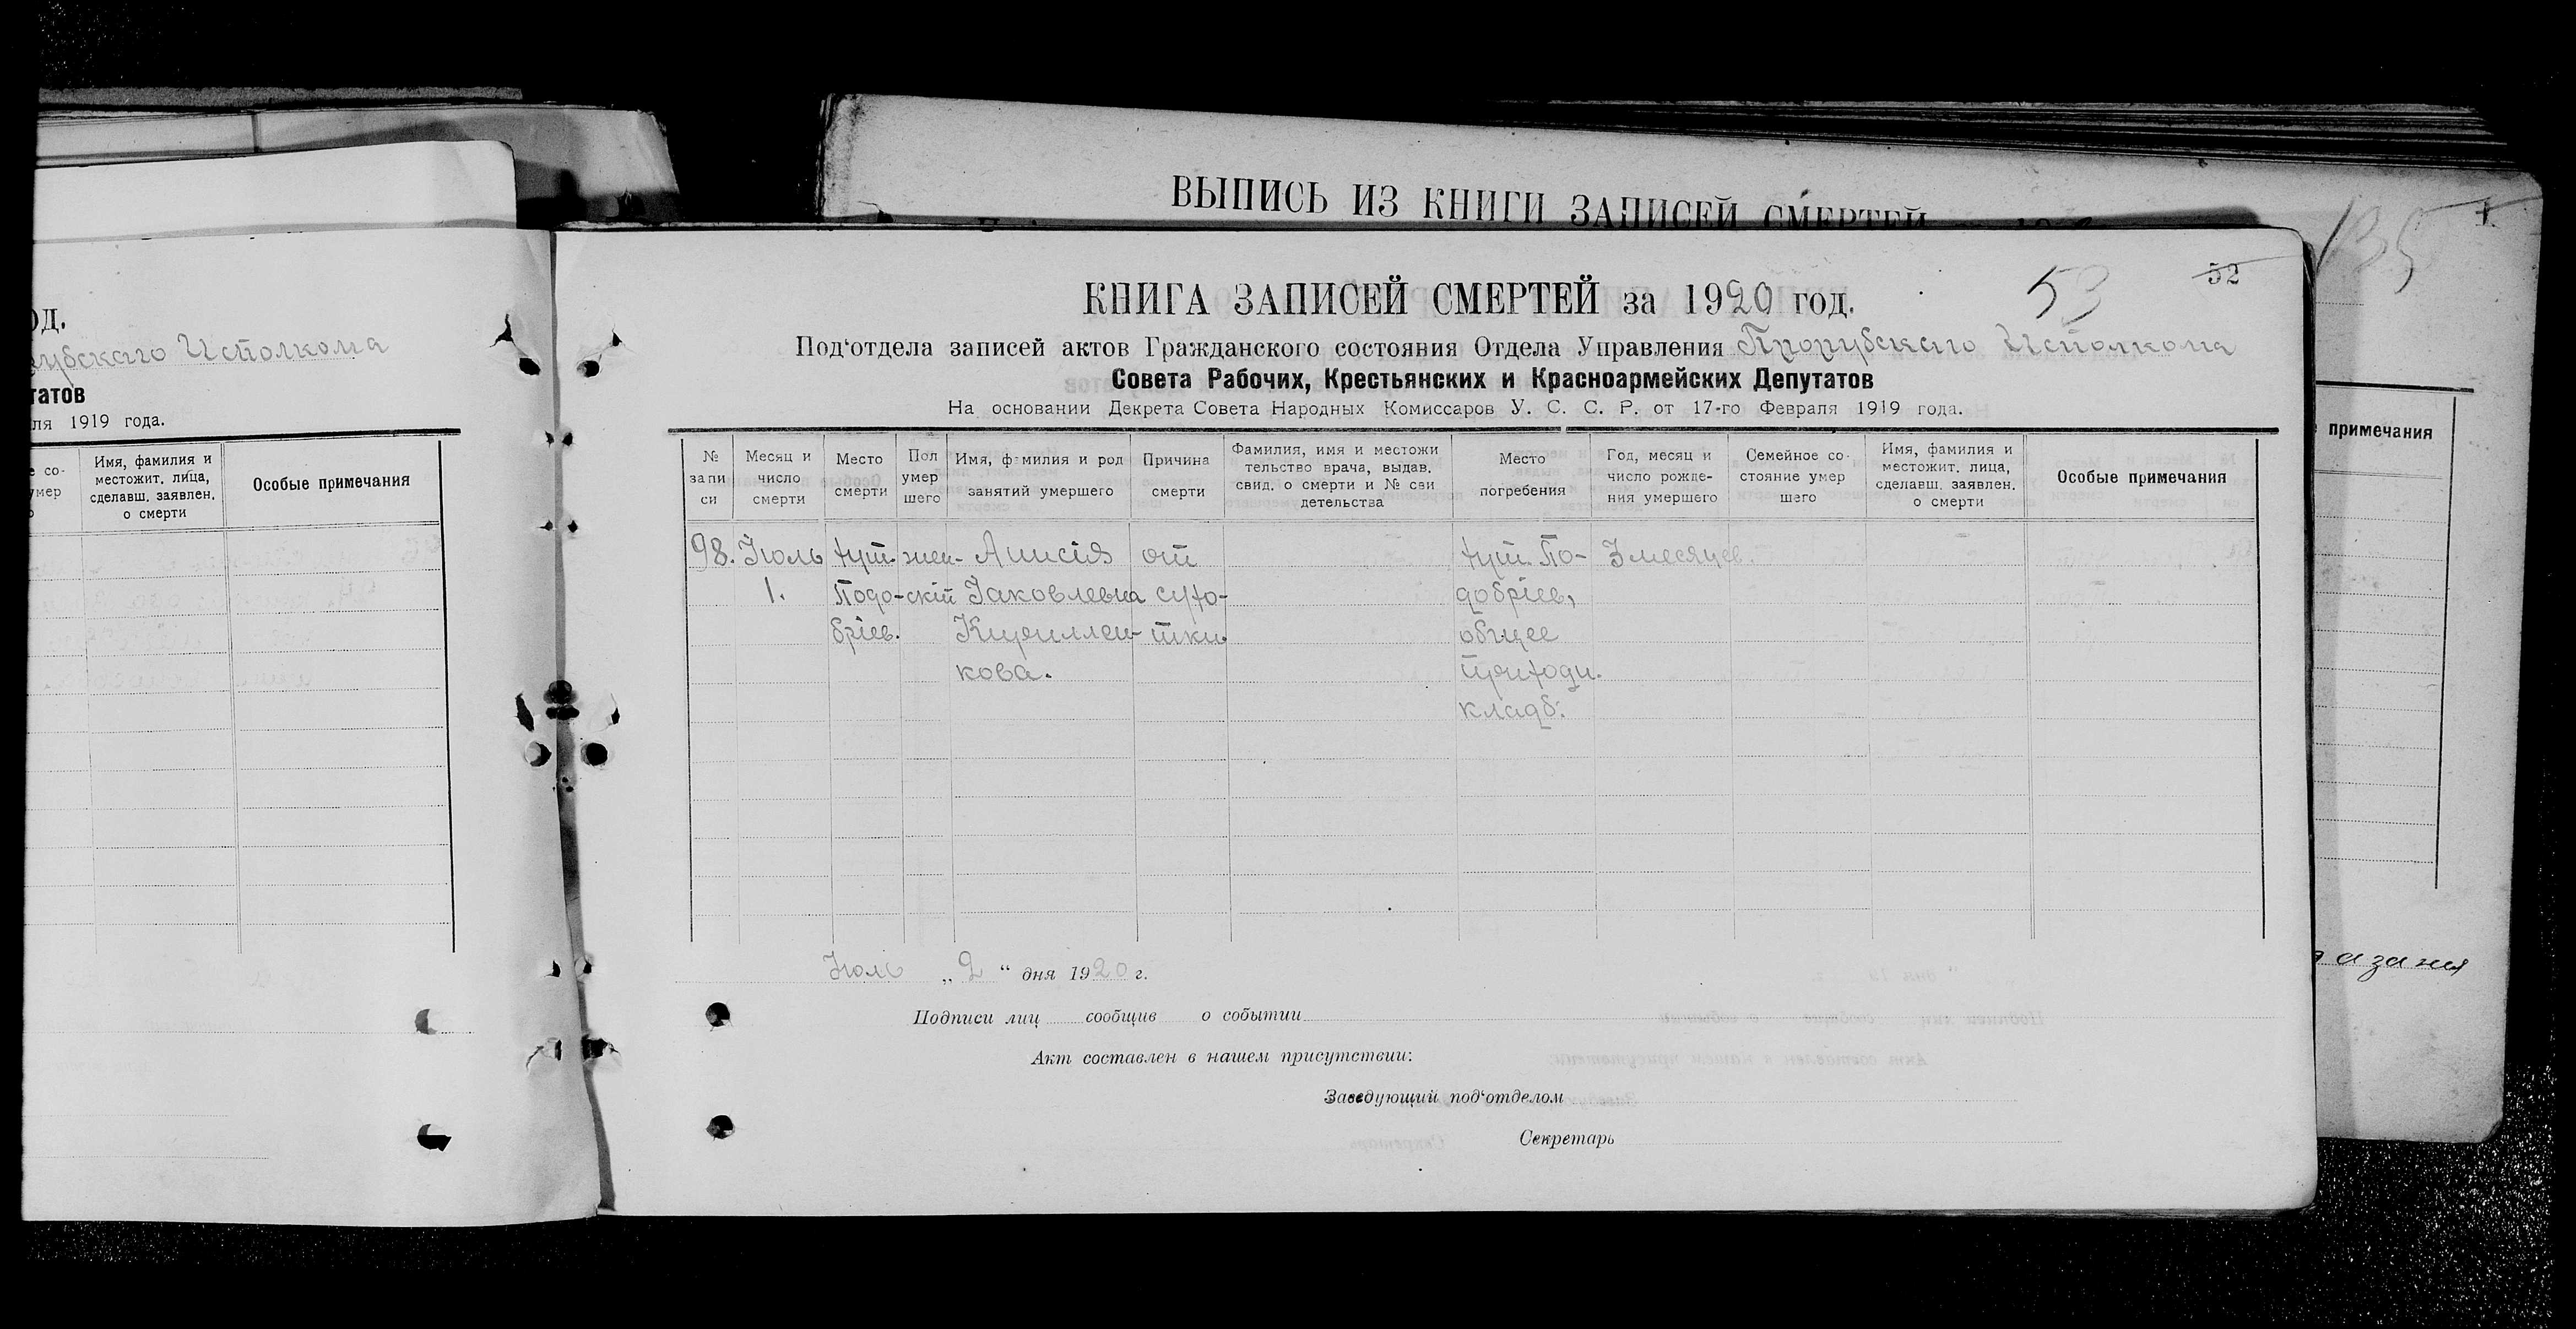 ВЫПИСЬ ИЗ КНИГИ ЗАПИСЕЙ СМЕРТЕЙ
135
од.
убскаго Исполкома
татов
ля 1919 года.
е со-
умер
о
Имя, фамилия и
местожит. лица,
сделавш. заявлен.
о смерти
Особые примечания
КНИГА ЗАПИСЕЙ СМЕРТЕЙ за 1920 год.
53
52
Под‘отдела записей актов Гражданского состояния Отдела Управления Прорубскаго Исполкома
Совета Рабочих, Крестьянских и Красноармейских Депутатов
На основании Декрета Совета Народных Комиссаров У. С. С. Р. от 17-го Февраля 1919 года.
№
запи
си
Месяц и
число
смерти
Место
смерти
Пол
умер
шего
Имя, фамилия и род
занятий умершего
Причина
смерти
Фамилия, имя и местожи
тельство врача, выдав.
свид. о смерти и № сви
детельства
Место
погребения
Год, месяц и
число рожде-
ния умершего
Семейное со-
стояние умер
шего
Имя, фамилия и
местожит. лица,
сделавш. заявлен.
о смерти
Особые примечания
98.
Іюль
1.
хут.
Подо-
бріев.
жен-
скій
Анисія
Іаковлевна
Кириллен-
кова.
от
сухо-
тки.
хут. По-
добріев,
общее
приходи.
кладб.
3 месяцев.
Іюль „2“ дня 1920 г.
Подписи лиц сообщив о событии
Акт составлен в нашем присутствии:
Заведующий под‘отделом
Секретарь
примечания